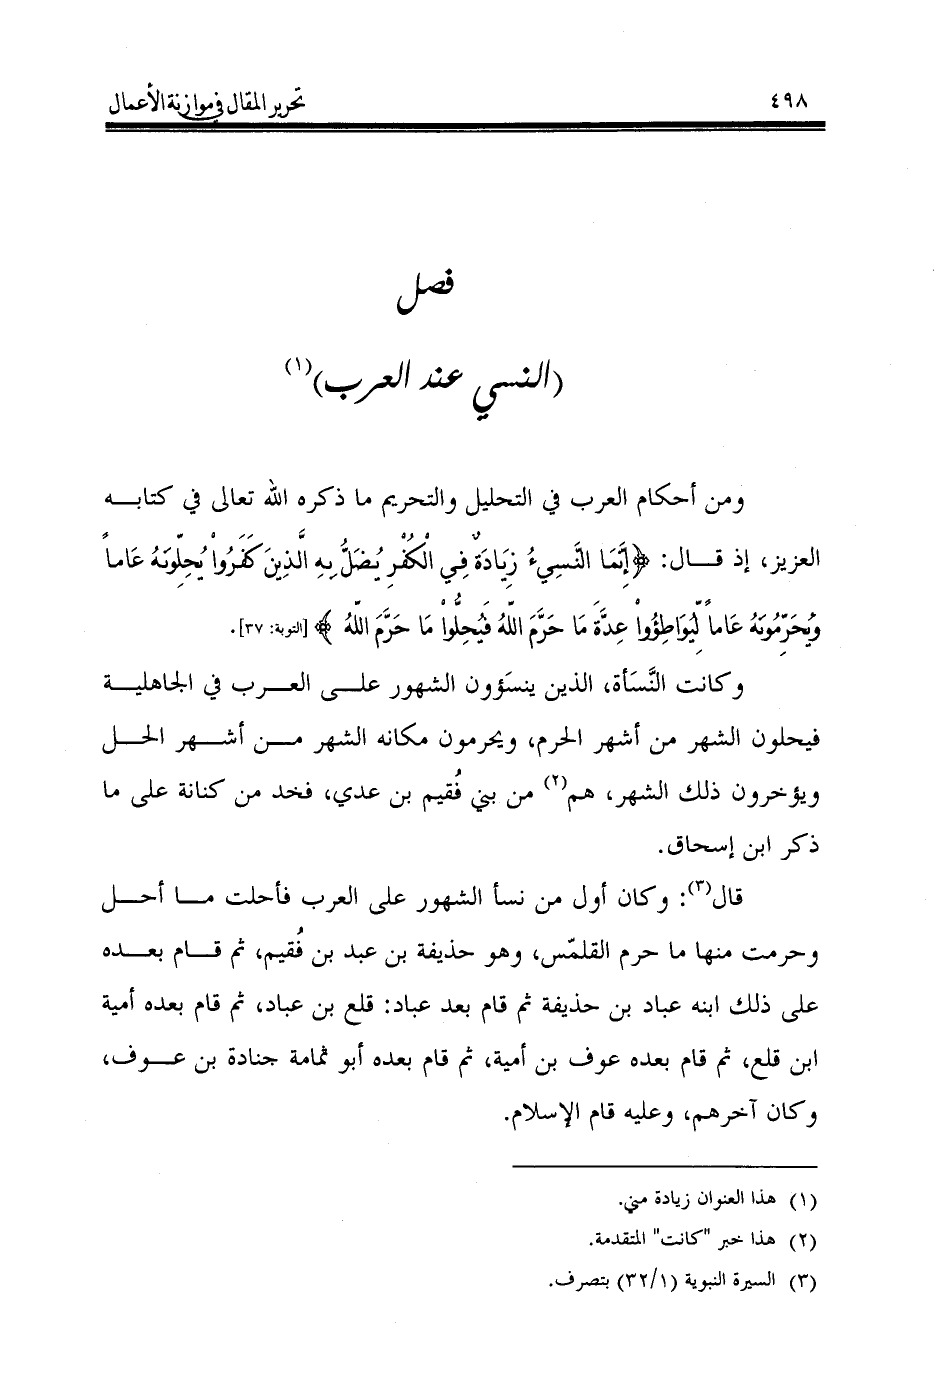 ٤٩٨
تحرير المقال في موازنة الأعمال
فصل
(النسي عند العرب)(١)
ومن أحكام العرب في التحليل والتحريم ما ذكره الله تعالى في كتابه
العزيز، إذ قال: ﴿إِنَّمَا النَّسِيءُ زِيَادَةٌ فِي الْكُفْرِ يُضَلُّ بِهِ الَّذِينَ كَفَرُواْ يُحِلُّونَهُ عَاماً
وَيُحَرِّمُونَهُ عَاماً لِّيُوَاطِؤُواْ عِدَّةَ مَا حَرَّمَ اللّهُ فَيُحِلُّواْ مَا حَرَّمَ اللّهُ﴾ [التوبة: ٣٧].
وكانت النَّسَأة، الذين ينسَؤون الشهور على العرب في الجاهلية
فيحلون الشهر من أشهر الحرم، ويحرمون مكانه الشهر من أشهر الحل
ويؤخرون ذلك الشهر، هم(٢) من بني فُقيم بن عدي، فخد من كنانة على ما
ذكر ابن إسحاق.
قال(٣): وكان أول من نسأ الشهور على العرب فأحلت ما أحل
وحرمت منها ما حرم القلمّس، وهو حذيفة بن عبد بن فُقيم، ثم قام بعده
على ذلك ابنه عباد بن حذيفة ثم قام بعد عباد: قلع بن عباد، ثم قام بعده أمية
ابن قلع، ثم قام بعده عوف بن أمية، ثم قام بعده أبو ثمامة جنادة بن عوف،
وكان آخرهم، وعليه قام الإسلام.
(١) هذا العنوان زيادة مني.
(٢) هذا خبر "كانت" المتقدمة.
(٣) السيرة النبوية (٣٢/١) بتصرف.